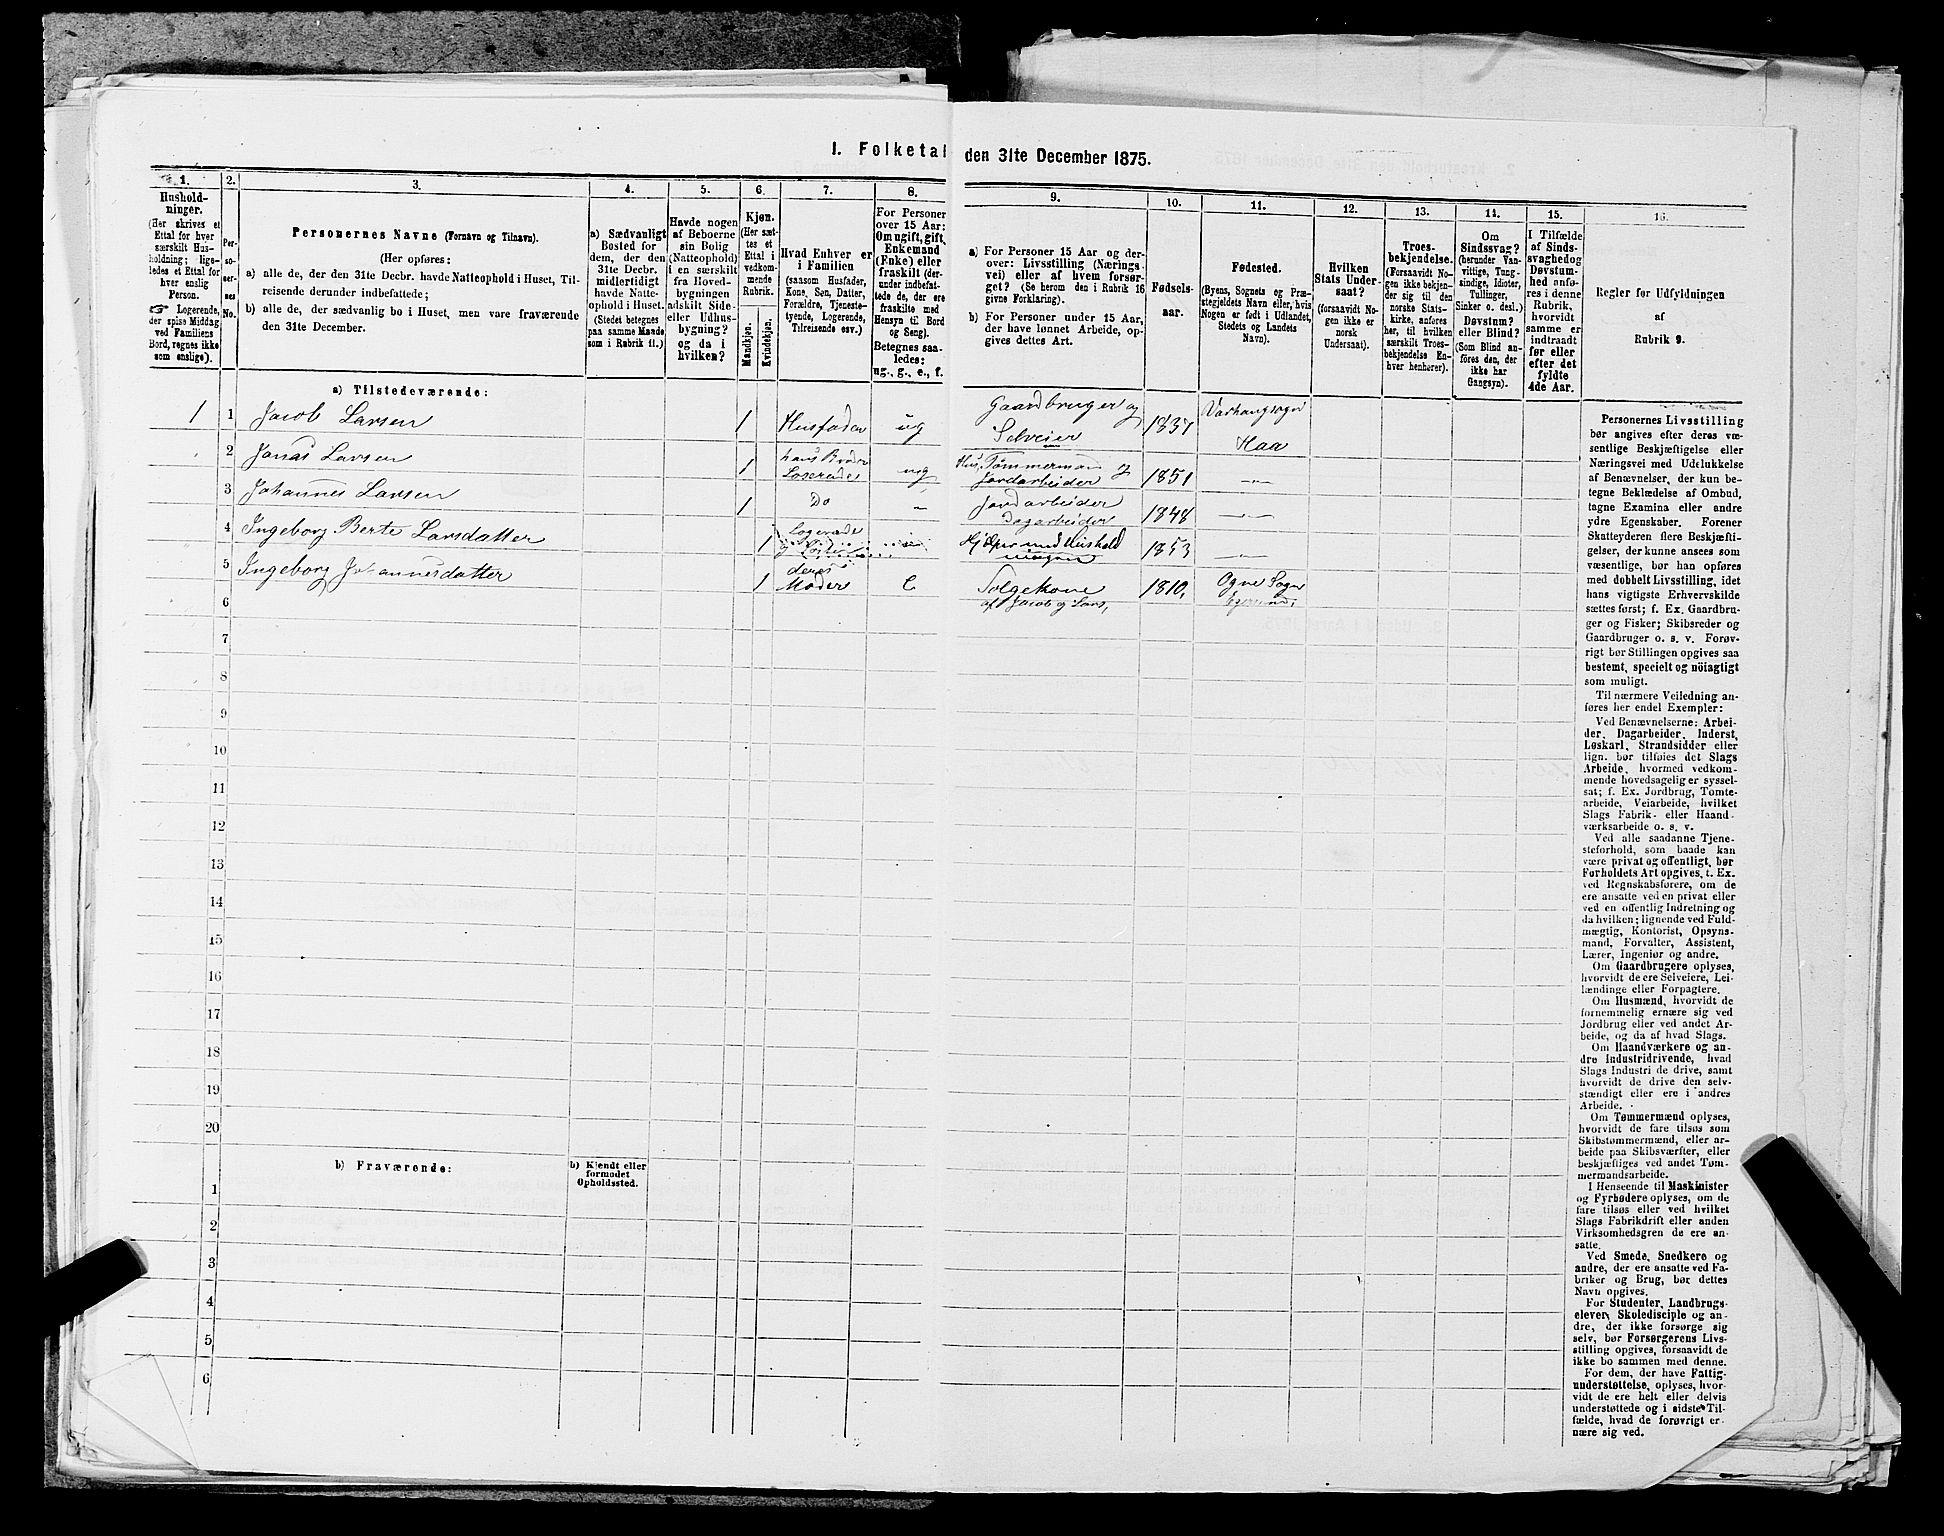 I. Folketal den 31te December 1875.
1.
Hushold-
ninger.
(Her skrives et
Ettal for hver
særskilt Hus-
holdning; lige-
ledes et Ettal for
hver enslig
Person.
☞ Logerende,
der spise Middag
ved Familiens
Bord, regnes ikke
som enslige).
2.
Per-
so-
ner-
nes
No.
3.
Personernes Navne (Fornavn og Tilnavn).
(Her opføres:
a) alle de, der den 31te Decbr. havde Natteophold i Huset, Til-
reisende derunder indbefattede;
b) alle de, der sædvanlig bo i Huset, men vare fraværende
den 31te December.
4.
a) Sædvanligt
Bosted for
dem, der den
31te Decbr.
midlertidigt
havde Natte-
ophold i Huset.
(Stedet betegnes
paa samme Maade
som i Rubrik 11.)
5.
Havde nogen
af Beboerne
sin Bolig
(Natteophold)
i en særskilt
fra Hoved-
bygningen
adskilt Side-
eller Udhus-
bygning?
og da i
hvilken?
6.
Kjøn.
(Her sæt-
tes et
Ettal i
vedkom-
mende
Rubrik.
Mandkjøn.
Kvindekjøn.
7.
Hvad Enhver er
i Familien
(saasom Husfader,
Kone, Søn, Datter,
Forældre, Tjeneste-
tyende, Logerende,
Tilreisende osv.)
8.
For Personer
over 15 Aar:
Om ugift, gift,
Enkemand
(Enke) eller
fraskilt (der-
under indbefat-
tede de, der ere
fraskilte med
Hensyn til Bord
og Seng).
Betegnes saa-
ledes:
ug., g., e., f.
9.
a) For Personer 15 Aar og der-
over: Livsstilling (Nærings-
vei) eller af hvem forsør-
get? (Se herom den i Rubrik 16
givne Forklaring).
b) For Personer under 15 Aar,
der have lønnet Arbeide, op-
gives dettes Art.
10.
Fødsels-
aar.
11.
Fødested.
(Byens, Sognets og Præ-
stegjeldets Navn eller, hvis
Nogen er født i Udlandet,
Stedets og Landets
Navn).
12.
Hvilken
Stats Under-
saat?
(forsaavidt No-
gen ikke er
norsk
Undersaat).
13.
Troes-
bekjendelse.
(Forsaavidt No-
gen ikke bekjen-
der sig til den
norske Stats-
kirke, anføres
her, til hvilken
særskilt Troes-
bekjendelse En-
hver henhører).
14.
Om
Sindssvag?
(herunder Van-
vittige, Tung-
sindige, Idioter,
Tullinger,
Sinker o. desl.)
Døvstum?
eller Blind?
(Som Blind an-
føres den, der
ikke har
Gangsyn).
15.
I Tilfælde
af Sinds-
svaghed og
Døvstum-
hed anfø-
res i denne
Rubrik,
hvorvidt
samme er
indtraadt
før eller
efter det
fyldte
4de Aar.
16.
Regler for Udfyldningen
af
Rubrik 9.
a) Tilstedeværende:
1 1 Jacob Larsen 1 Husfader ug Gaardbruger og Selveier 1837 Varhaugsogn Haa
2 Jonas Larsen 1 hans Broder Logerende ug Tømmerman og Jordarbeider 1851 —"—
3 Johannes Larsen 1 Do — Jordarbeider Dagarbeider 1848 —"—
4 Ingeborg Berte Larsdatter 1 Logerende og Søster Hjelper med Hushold ningen 1853 —"—
5 Ingeborg Johannesdatter 1 deres Moder E Folgekone af Jacob og Lars, 1810, Ogne Sogn
6
7
8
9
10
11
12
13
14
15
16
17
18
19
20
b) Fraværende:
b) Kjendt eller
formodet
Opholdssted.
1
2
3
4
5
6
Personernes Livsstilling
bør angives efter deres væ-
sentlige Beskjæftigelse eller
Næringsvei med Udelukkelse
af Benævnelser, der kun be-
tegne Beklædelse af Ombud,
tagne Examina eller andre
ydre Egenskaber. Forener
Skatteyderen flere Beskjæfti-
gelser, der kunne ansees som
væsentlige, bør han opføres
med dobbelt Livsstilling, idet
hans vigtigste Erhvervskilde
sættes først; f. Ex. Gaardbru-
ger og Fisker; Skibsreder og
Gaardbruger o. s. v. Forøv-
rigt bør Stillingen opgives saa
bestemt, specielt og nöiagtigt
som muligt.
Til nærmere Veiledning an-
føres her endel Exempler:
Ved Benævnelserne: Arbei-
der, Dagarbeider, Inderst,
Løskarl, Strandsidder eller
lign. bør tilføies det Slags
Arbeide, hvormed vedkom-
mende hovedsagelig er syssel-
sat; f. Ex. Jordbrug, Tomte-
arbeide, Veiarbeide, hvilket
Slags Fabrik- eller Haand-
værksarbeide o. s. v.
Ved alle saadanne Tjene-
steforhold, som baade kan
være privat og offentligt, bør
Forholdets Art opgives, t. Ex.
ved Regnskabsførere, om de
ere ansatte ved en privat eller
ved en offentlig Indretning og
da hvilken; lignende ved Fuld-
mægtig, Kontorist, Opsyns-
mand, Forvalter, Assistent,
Lærer, Ingeniør og andre.
Om Gaardbrugere oplyses,
hvorvidt de ere Selveiere, Lei-
lændinge eller Forpagtere.
Om Husmænd, hvorvidt de
fornemmelig ernære sig ved
Jordbrug eller ved andet Ar-
beide, og da af hvad Slags.
Om Haandværkere og an-
dre Industridrivende, hvad
Slags Industri de drive, samt
hvorvidt de drive den selv-
stændigt eller ere i andres
Arbeide.
Om Tømmermænd oplyses,
hvorvidt de fare tilsøs som
Skibstømmermænd, eller ar-
beide paa Skibsværfter, eller
beskjæftiges ved andet Tøm-
mermandsarbeide.
I Henseende til Maskinister
og Fyrbødere oplyses, om de
fare tilsøs eller ved hvilket
Slags Fabrikdrift eller anden
Virksomhedsgren de ere an-
satte.
Ved Smede, Snedkere og
andre, der ere ansatte ved Fa-
briker og Brug, bør dettes
Navn opgives.
For Studenter, Landbrugs-
elever, Skoledisciple og an-
dre, der ikke forsørge sig
selv, bør Forsørgerens Livs-
stilling opgives, forsaavidt de
ikke bo sammen med denne.
For dem, der have Fattig-
understøttelse, oplyses, hvor-
vidt de ere helt eller delvis
understøttede og i sidste Til-
fælde, hvad de forøvrigt er-
nære sig ved.